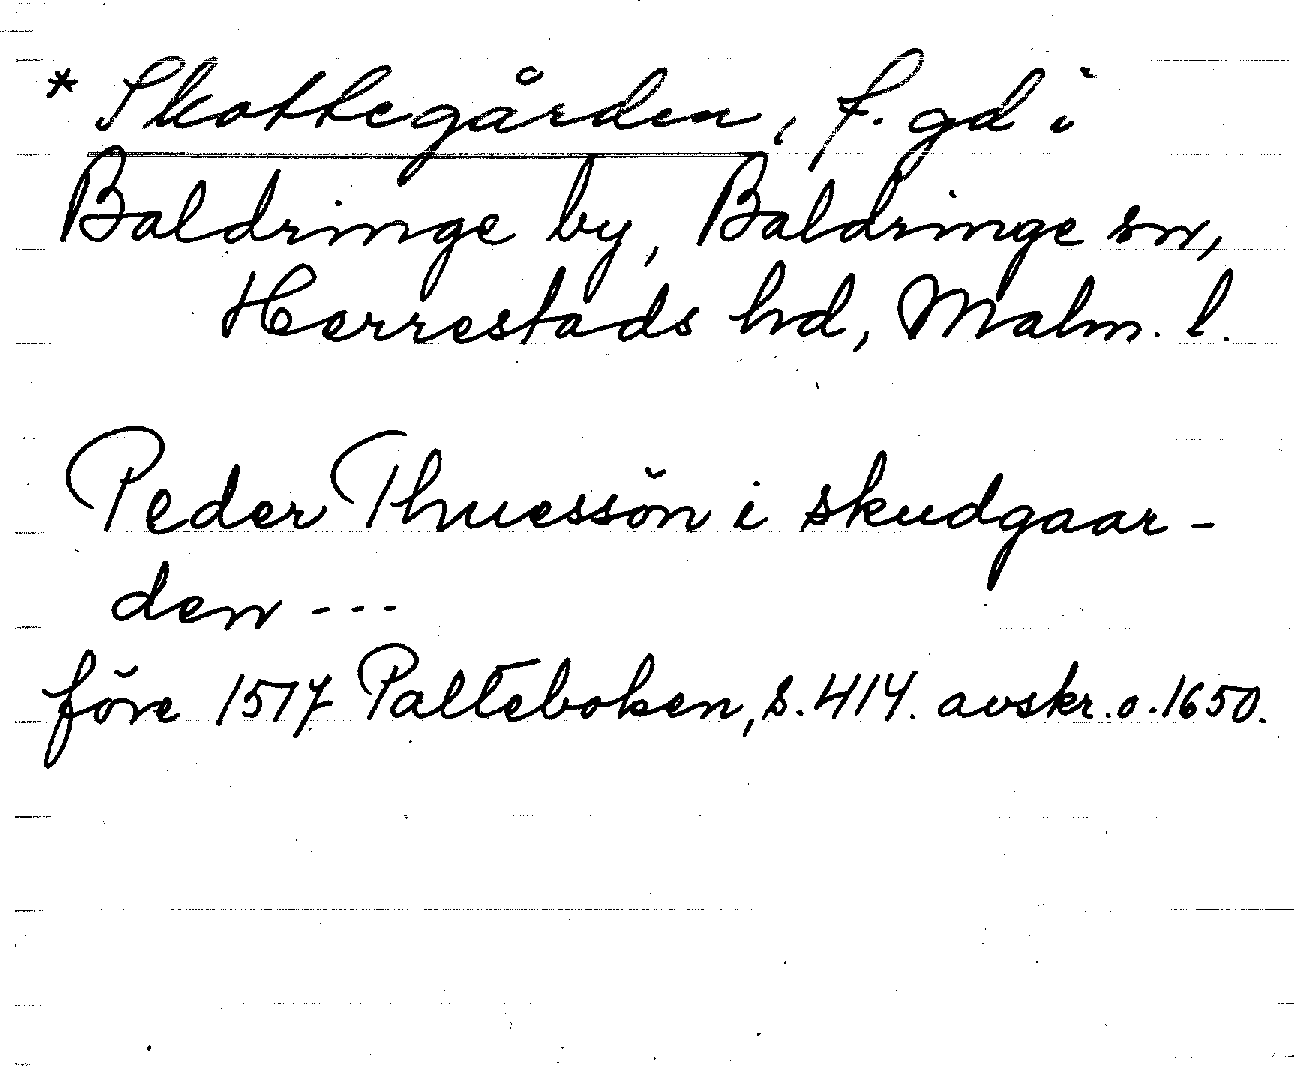 * Skottegården, f. gd i
Baldringe by, Baldringe sn,
Herrestads hd, Malm. l.
Peder Thuessön i skudgaar-
den ---
före 1517 Palteboken, s. 414. avskr. o. 1650.